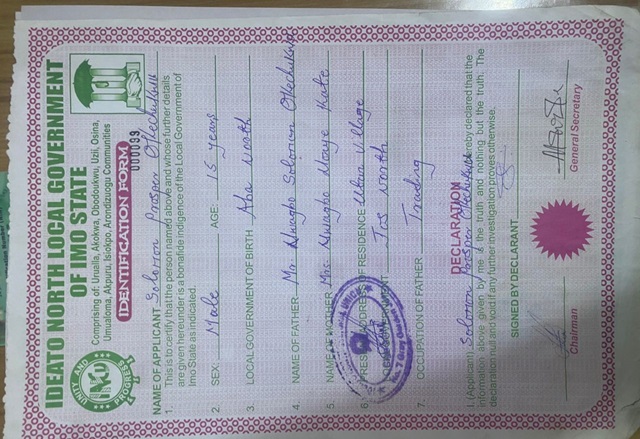 IDEATO NORTH LOCAL GOVERNMENT
OF IMO STATE
Comprising of: Urualla, Akokwa, Obodoukwu, Uzii, Osina,
Umualoma, Akpuru, Isiokpo, Arondizuogu Communities
IDENTIFICATION FORM
000093
UNITY AND
PROGRESS
NAME OF APPLICANT Solomon Prosper Okechukwu
1. This is to certify that the person named above and whose further details
are given hereunder is a bonafide indigence of the Local Government of
Imo State as indicated.
2. SEX Male AGE: 15 years
3. LOCAL GOVERNMENT OF BIRTH Aba North
4. NAME OF FATHER Mr Nwagbo Solomon Okechukwu
5. NAME OF MOTHER Mrs Nwagbo Ngozi Kate
6. PRESENT ADDRESS OF RESIDENCE Village
Jos North
7. OCCUPATION OF FATHER Trading
DECLARATION
I, (Applicant) Solomon Prosper Okechukwu hereby declared that the
information above given by me is the truth and nothing but the truth. The
declaration null and void if any further investigation proves otherwise.
SIGNED BY DECLARANT
Chairman
General Secretary